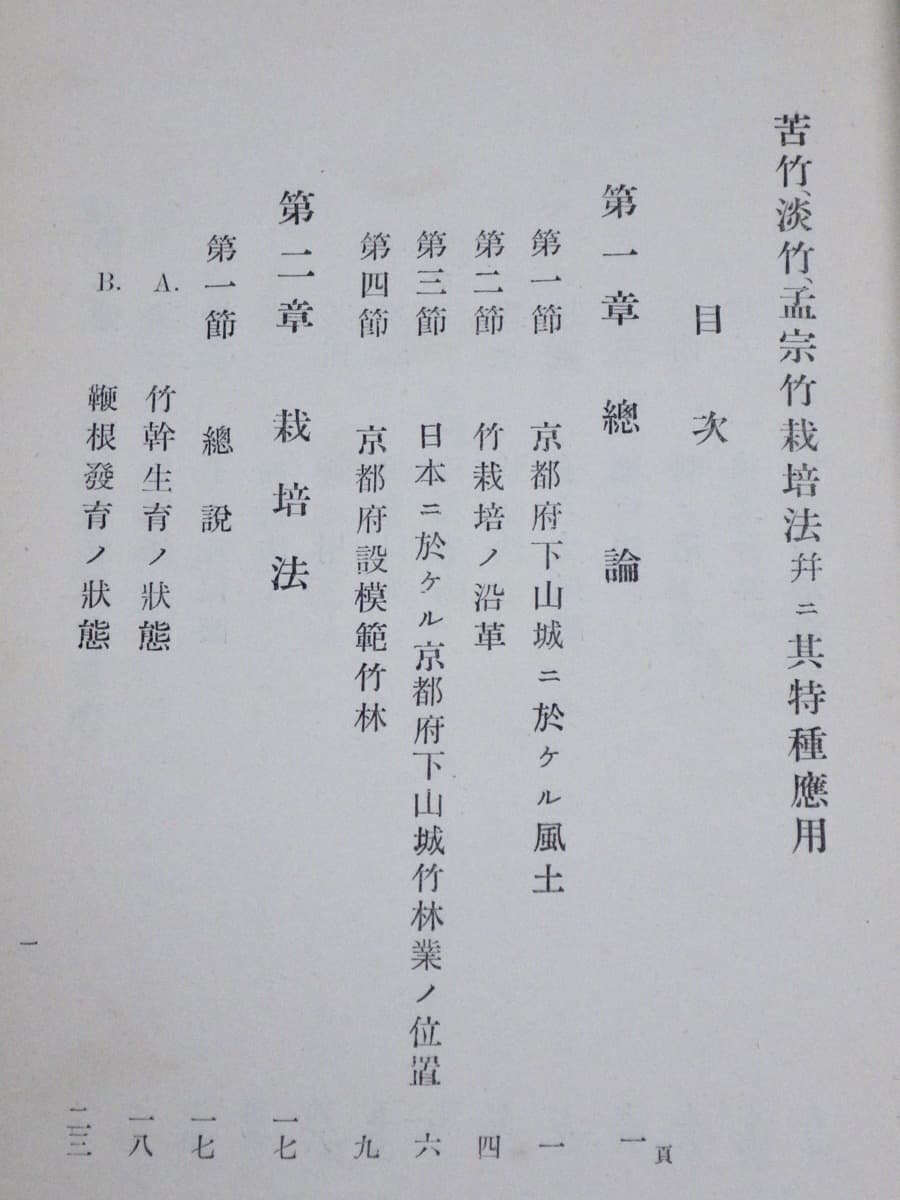 苦竹、淡竹、孟宗竹栽培法幷ニ其特種應用
目次
頁
第一章 總論 一
第一節 京都府下山城ニ於ケル風土 一
第二節 竹栽培ノ沿革 四
第三節 日本ニ於ケル京都府下山城竹林業ノ位置 六
第四節 京都府設模範竹林 九
第二章 栽培法 一七
第一節 總說 一七
A. 竹幹生育ノ狀態 一八
B. 鞭根發育ノ狀態 二三
一